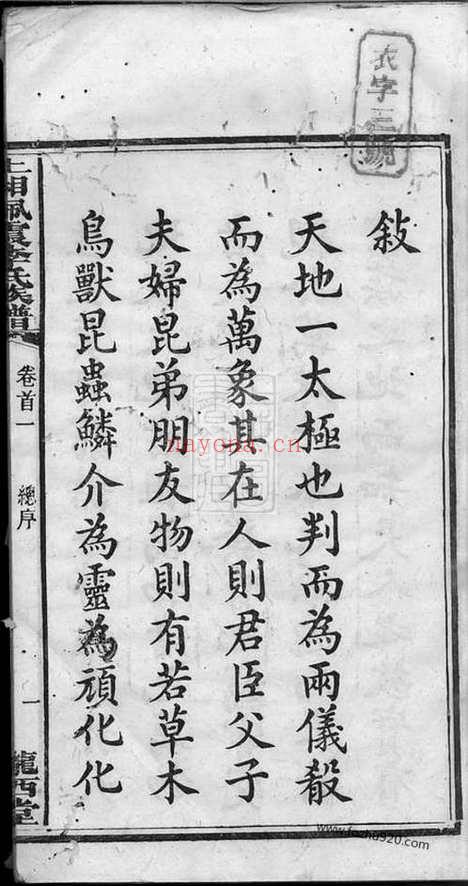 敍
天地一太極也判而為兩儀殽
而為萬象其在人則君臣父子
夫婦昆弟朋友物則有若草木
鳥獸昆蟲鱗介為靈為頑化化
李氏族譜
卷首一
總序
一
隴西堂
衣字三號
nayona.cn